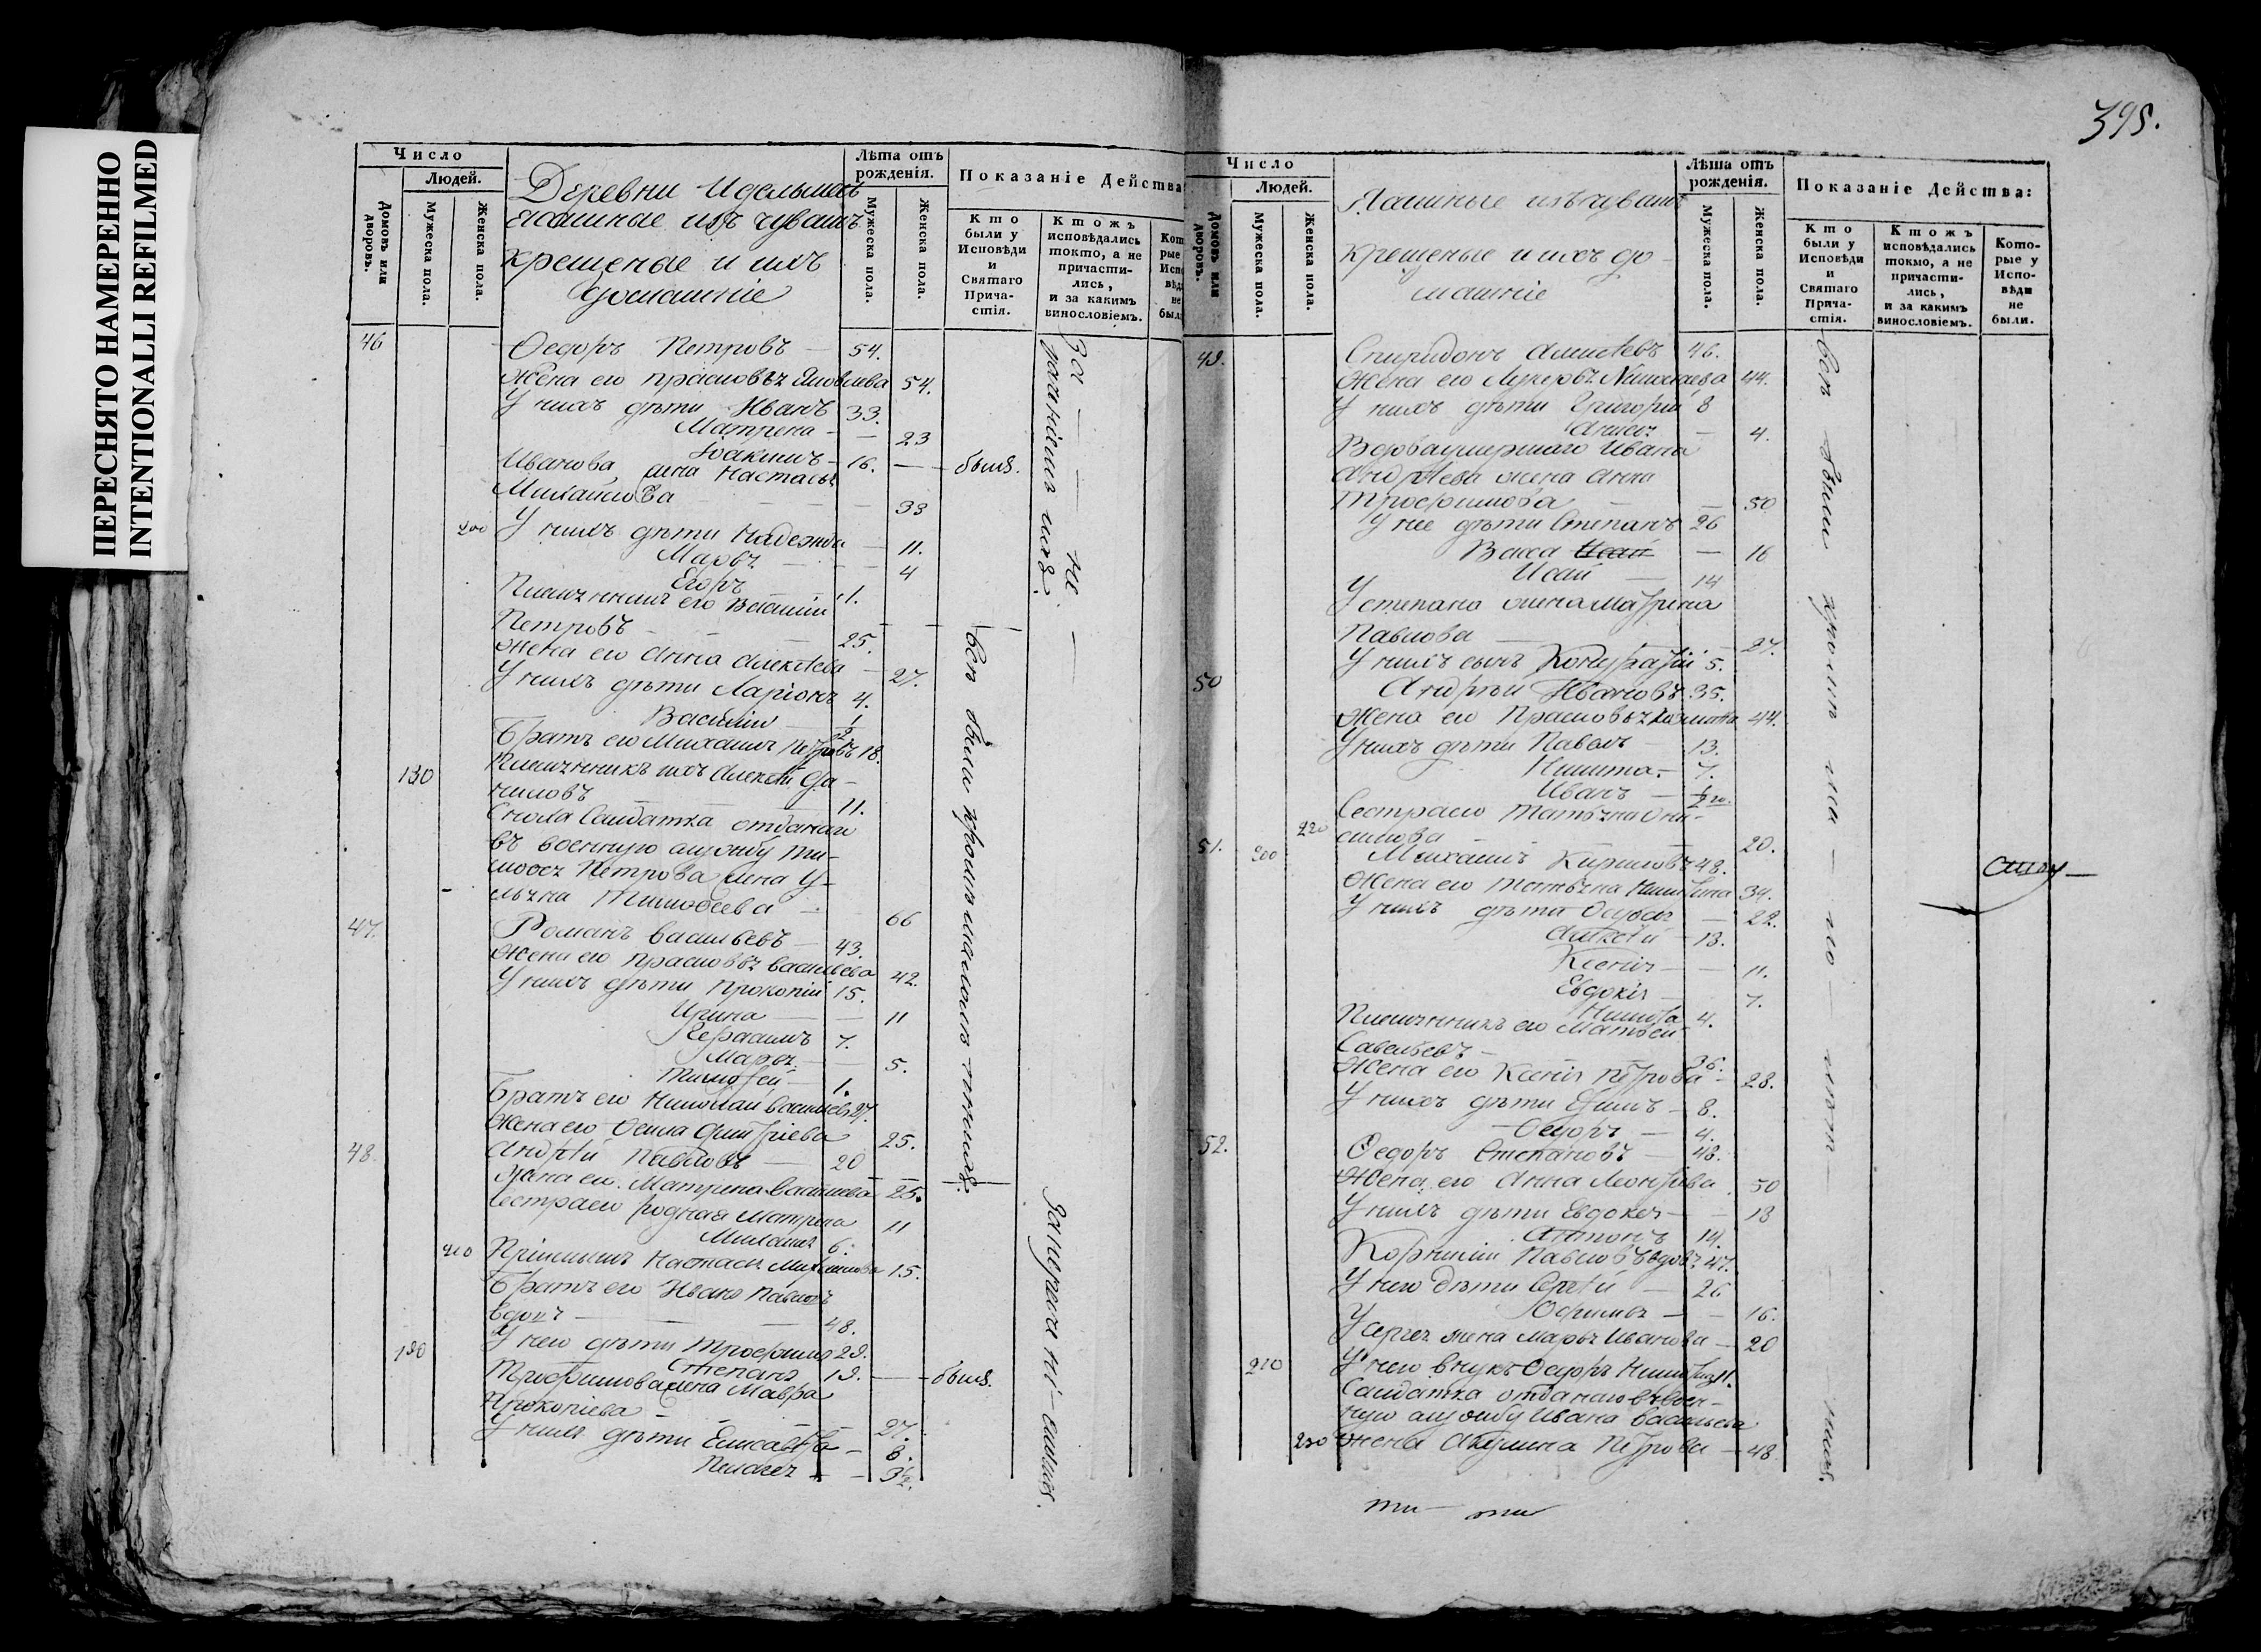 ПЕРЕСНЯТО НАМЕРЕННО
INTENTIONALLI REFILMED
395.
Число
Людей.
Домовъ или дворовъ.
Мужеска пола.
Женска пола.
Деревни
ясашные изъ чувашъ
крещеные и ихъ
домашніе
Лѣта отъ рожденія.
Мужеска пола.
Женска пола.
Показаніе Действа
Кто были у Исповѣди и Святаго Прича-стія.
Ктожъ исповѣдались токто, а не причасти-лись, и за какимъ винословіемъ.
46 Ѳедоръ Петровъ — 54.
Жена его Прасковья Яковлева 54.
У нихъ дѣти Иванъ 33.
Матрена — 23
Іоакимъ — 16. — былъ.
Иванова жена Настасья
Михайлова — 33
200 У нихъ дѣти Надежда — 11.
Марья — 4
Егоръ 1.
Племянникъ его Василій
Петровъ — 25.
Жена его Анна Алексѣева — 27.
У нихъ дѣти Ларіонъ 4.
Василій — 1/2
Братъ его Михаилъ Петровъ 18.
130 Племянникъ ихъ Алексѣй Да-
ниловъ — 11.
Солдатка отданаго
въ военную службу Ти-
моѳея Петрова жена У-
льяна Тимоѳеева — 66
47. Романъ Васильевъ — 43.
Жена его Прасковья Васильева 42.
У нихъ дѣти Прокопій 15.
Ирина — 11
Герасимъ 7.
Марья — 5.
Тимоѳей — 1.
Братъ его Николай Васильевъ 27.
Жена его Дмитріева 25.
48. Андрѣй Павловъ — 20
Жена его Матрена Васильева 25.
Сестра его родная Матрена 11
6.
210 Настасья 15.
Братъ его Иванъ Павловъ
вдовъ — 48.
У него дѣти Трофимъ 28.
Степанъ 19. — былъ.
Трофимова жена Мавра
Прокопіева — 27.
У нихъ дѣти Елисавета — 8.
Пелагея — 3½.
всѣ были кромѣ малолѣтнихъ.
Число
Людей.
Домовъ или дворовъ.
Мужеска пола.
Женска пола.
Ясашные изъ чувашъ
крещеные и ихъ до-
машніе
Лѣта отъ рожденія.
Мужеска пола.
Женска пола.
Показаніе Действа:
Кто были у Исповѣди и Святаго Прича-стія.
Ктожъ исповѣдались токмо, а не причасти-лись, и за какимъ винословіемъ.
Кото-рые у Испо-вѣди не были.
49. Спиридонъ Алексѣевъ 46.
Жена его Лукерья Николаева 44.
У нихъ дѣти Григорій 8
— 4.
Вдова умершаго Ивана
Андрѣева жена Анна
Трофимова — 50
У нее дѣти Степанъ 26
Васса — 16
Исай — 14
У Степана жена Матрена
Павлова — 27.
У нихъ сынъ Кондратій 5.
50 Андрѣй Ивановъ 35.
Жена его Прасковья 44.
У нихъ дѣти Павелъ — 13.
Никита — 7.
Иванъ — 1/2 го.
Сестра его Татьяна Они-
220 симова — 20.
51. 200 Михаилъ Кириловъ 48.
Жена его Татьяна Никитина 39.
У нихъ дѣти Ѳедосья — 22.
Алексѣй — 13.
Ксенія — 11.
Евдокія — 7.
Никита 4.
Племянникъ его Матвѣй
Савельевъ — 36.
Жена его Ксенія Петрова — 28.
У нихъ дѣти Ефимъ — 8.
Ѳедоръ — 4.
52. Ѳедоръ Степановъ — 48.
Жена его Анна 50
У нихъ дѣти Евдокея — 18
19.
Корнилій Павловъ вдовъ 47.
У него дѣти Сергѣй — 26
Юфимья — 16.
У Сергея жена Марья Иванова — 20
210 У него внукъ Ѳедоръ 11.
Солдатка отданаго въ воен-
ную службу Ивана Васильева
230 жена Акулина Петрова — 48
всѣ были кромѣ ма-ло-лѣт-нихъ.